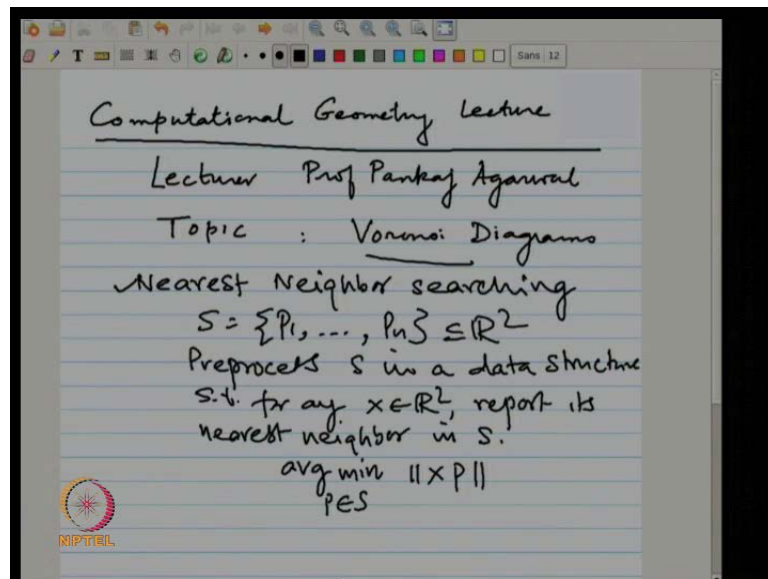 Sans 12
Computational Geometry Lecture
Lecturer Prof Pankaj Agarwal
Topic : Voronoi Diagrams
Nearest Neighbor searching
S = {P1, ..., Pn} ⊆ ℝ²
Preprocess S in a data structure
s.t. for any x ∈ ℝ², report its
nearest neighbor in S.
arg min ||x p||
p∈S
NPTEL